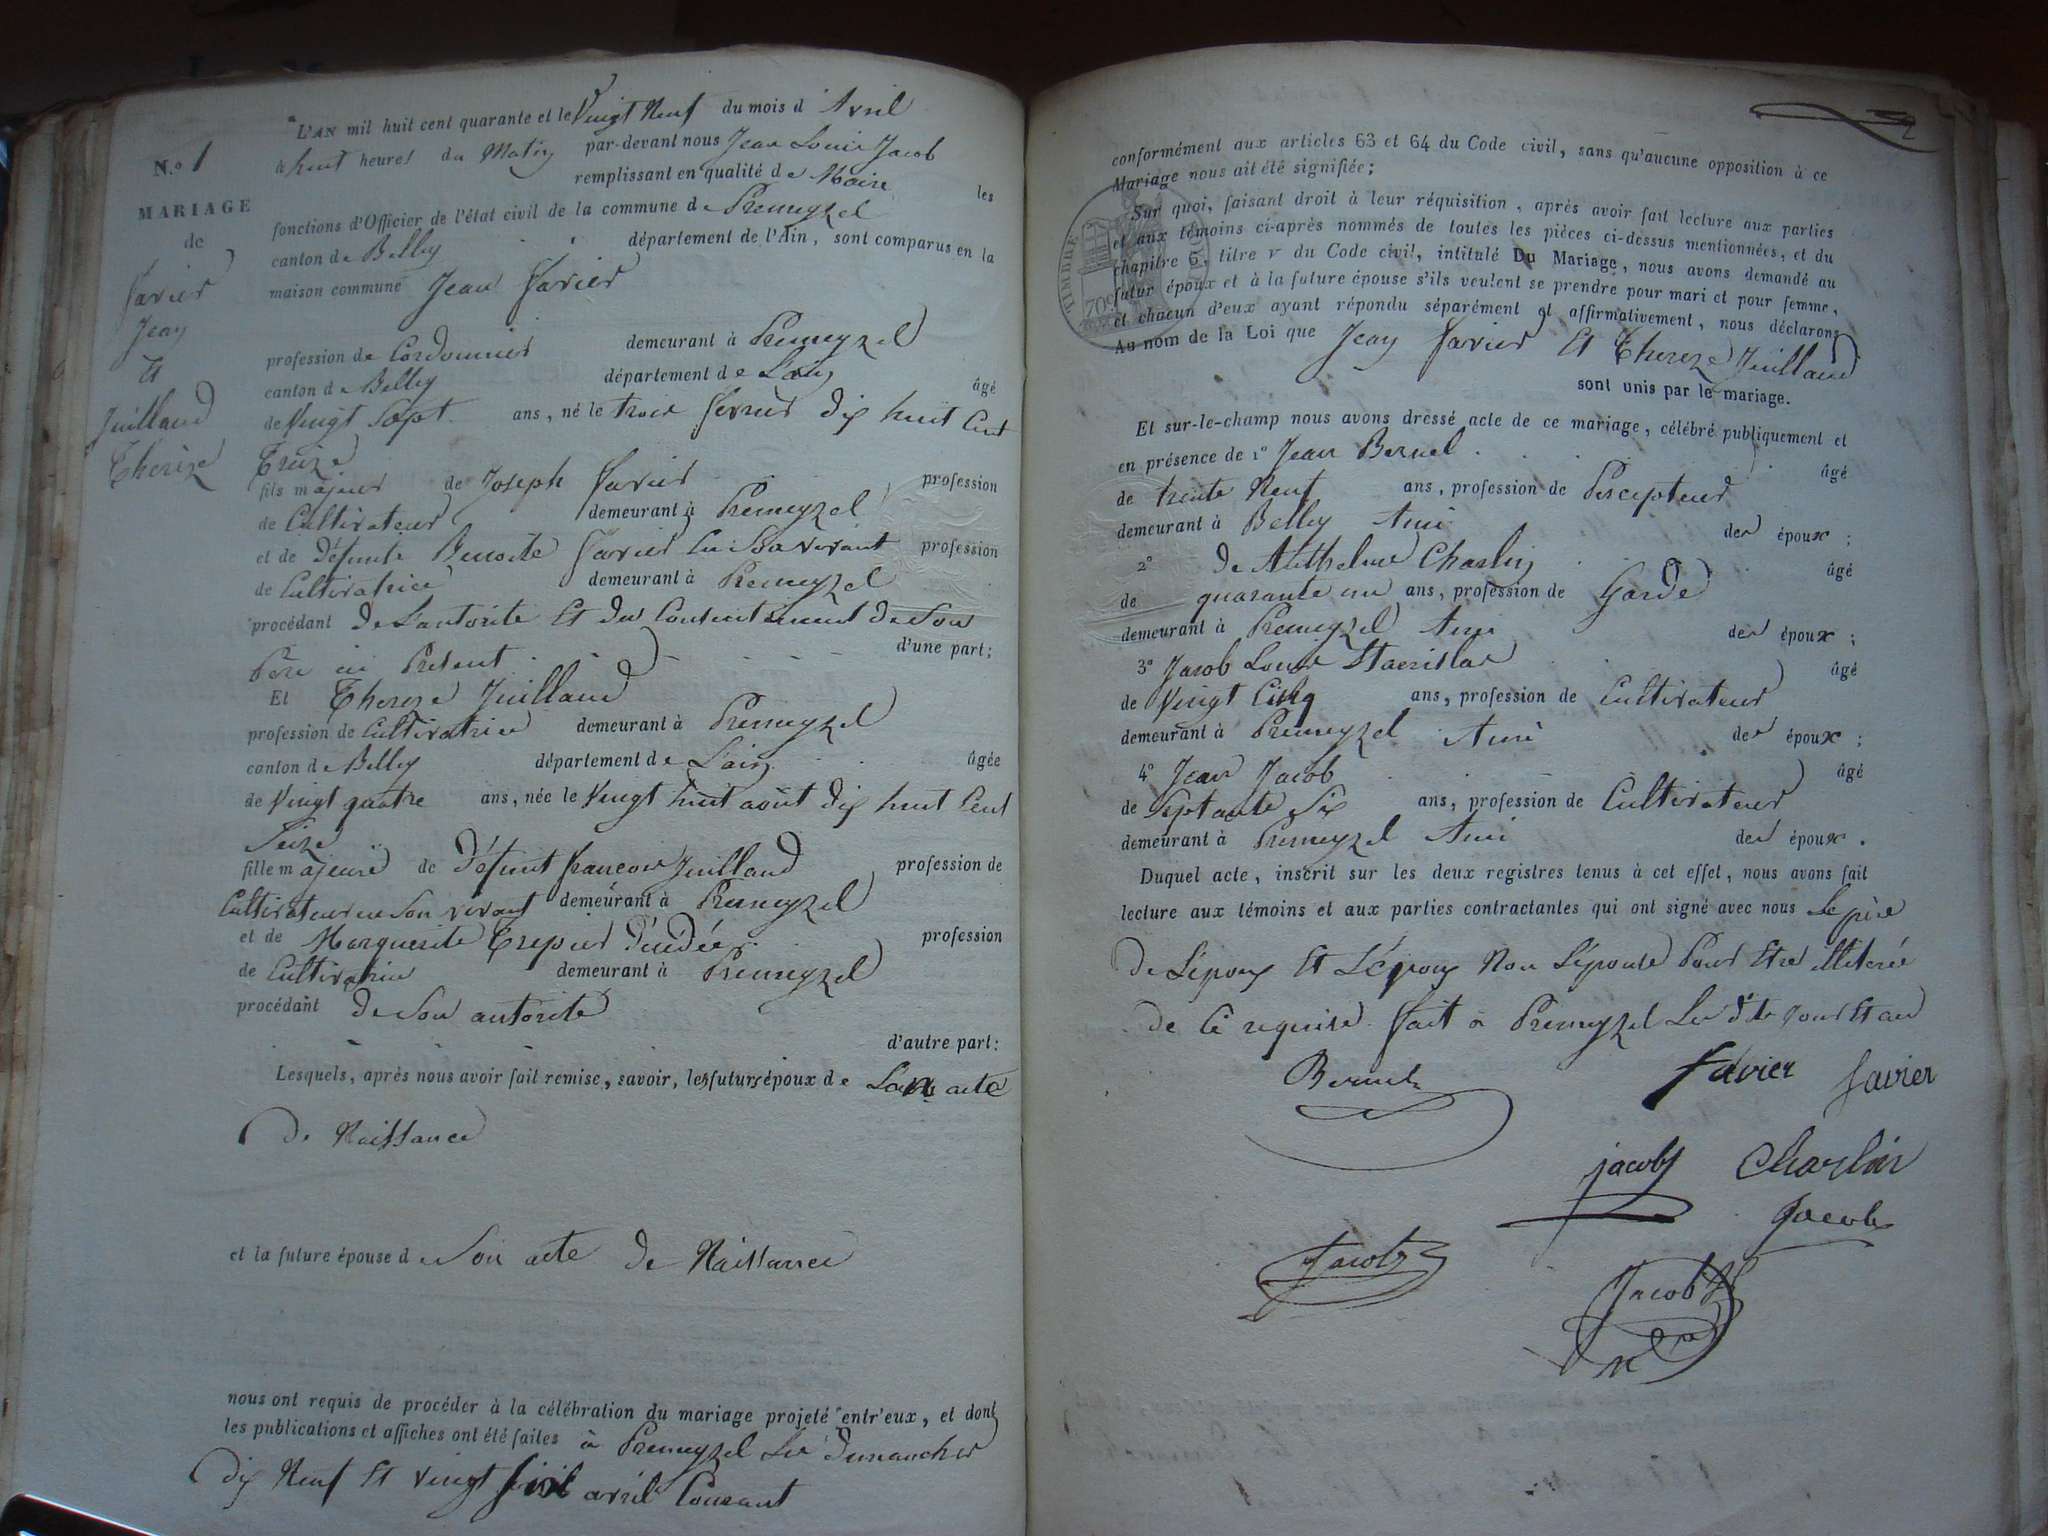 L'AN mil huit cent quarante et le Vingt Neuf du mois d'Avril
à huit heures du Matin par-devant nous Jean Louis Jacob
remplissant en qualité de Maire les
fonctions d'Officier de l'état civil de la commune de Premeyzel
canton de Belley département de l'Ain, sont comparus en la
maison commune Jean Favier
profession de Cordonnier demeurant à Premeyzel
canton de Belley département de Lain âgé
de Vingt Sept ans, né le trois fevrier dix huit Cent
Treize
fils majeur de Joseph Favier profession
de Cultivateur demeurant à Premeyzel
et de Défunte Benoite Favier en Son vivant profession
de Cultivatrice demeurant à Premeyzel
procédant de Lautorite Et du Consentement de Son
Père ici Présent d'une part;
Et Thereze Juilland
profession de Cultivatrice demeurant à Premeyzel
canton de Belley département de Lain âgée
de Vingt quatre ans, née le Vingt huit août dix huit Cent
Seize
fille majeure de Défunt francois Juilland profession de
Cultivateur en Son vivant demeurant à Premeyzel
et de Marguerite Trepier profession
de Cultivatrice demeurant à Premeyzel
procédant de Son autorite
d'autre part:
Lesquels, après nous avoir fait remise, savoir, les futurs époux de acte
de Naissance
et la future épouse de Son acte de Naissance
nous ont requis de procéder à la célébration du mariage projeté entr'eux, et dont
les publications et affiches ont été faites à Premeyzel Les dimanches
dix Neuf Et vingt avril Courant
N.o 1
MARIAGE
de
Favier
Jean
Et
Juilland
Thereze
2
conformément aux articles 63 et 64 du Code civil, sans qu'aucune opposition à ce
Mariage nous ait été signifiée;
Sur quoi, faisant droit à leur réquisition, après avoir fait lecture aux parties
et aux témoins ci-après nommés de toutes les pièces ci-dessus mentionnées, et du
chapitre 6, titre V du Code civil, intitulé Du Mariage, nous avons demandé au
futur époux et à la future épouse s'ils veulent se prendre pour mari et pour femme,
et chacun d'eux ayant répondu séparément et affirmativement, nous déclarons
Au nom de la Loi que Jean Favier Et Thereze Juilland
sont unis par le mariage.
Et sur-le-champ nous avons dressé acte de ce mariage, célébré publiquement et
en présence de 1o Jean Bernel âgé
de trente Neuf ans, profession de Percepteur
demeurant à Belley Ami des époux;
2o de Anthelme Charlin âgé
de quarante un ans, profession de Garde
demeurant à Premeyzel Ami des époux;
3o Jacob Louis Stanislas âgé
de Vingt Cinq ans, profession de Cultivateur
demeurant à Premeyzel Ami des époux;
4o Jean Jacob âgé
de Septante Six ans, profession de Cultivateur
demeurant à Premeyzel Ami des époux.
Duquel acte, inscrit sur les deux registres tenus à cet effet, nous avons fait
lecture aux témoins et aux parties contractantes qui ont signé avec nous Le père
de L'époux Et L'époux Non L'épouse Pour Etre illiterée
de Ce requise fait à Premeyzel Les dits jour Et an
Favier Favier
Jacob Charlin
Jacob
Jacob
Jacob
TIMBRE ROYAL
70c